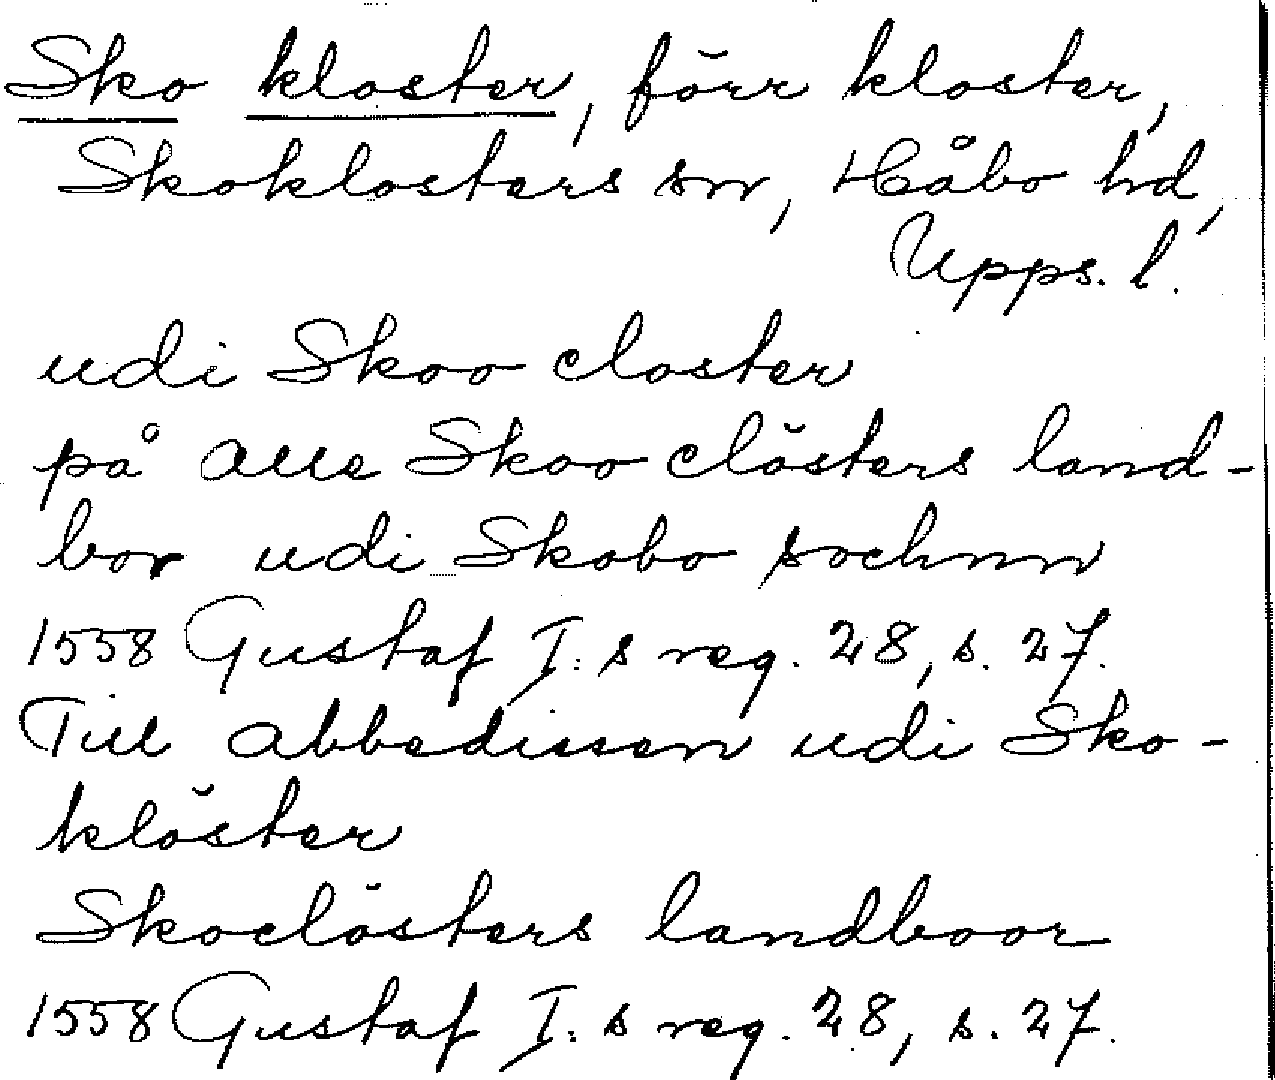 Sko kloster, förr kloster,
Skoklosters sn, Håbo hd,
Upps. l.
udi Skoo closter
på alle Skoo clösters land-
bor udi Skobo sochnn
1558 Gustaf I:s reg. 28, s. 27.
Till abbedissen udi Sko-
klöster
Skoclösters landboor
1558 Gustaf I:s reg. 28, s. 27.